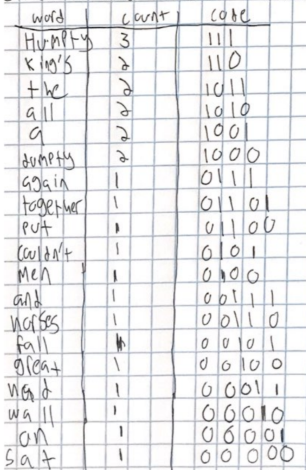 word count code
Humpty 3 111
king's 2 110
the 2 1011
all 2 1010
a 2 1001
dumpty 2 1000
again 1 0111
together 1 01101
put 1 01100
couldn't 1 0101
men 1 0100
and 1 00111
horses 1 00110
fall 1 00101
great 1 00100
had 1 00011
wall 1 00010
on 1 00001
sat 1 00000